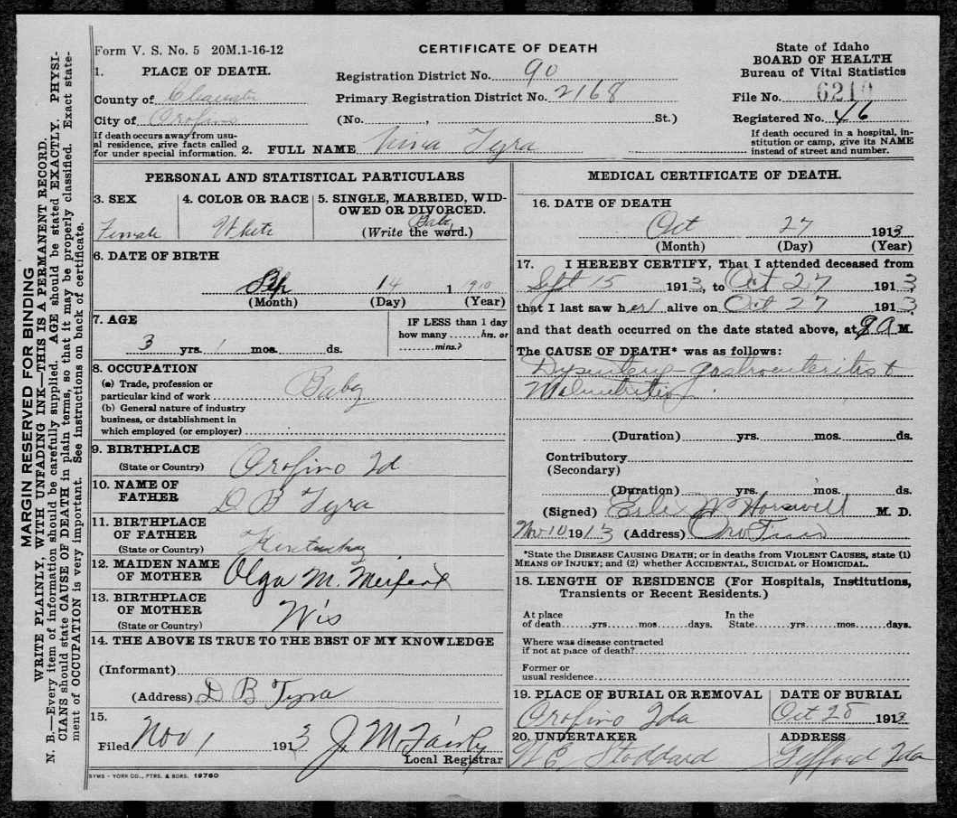 MARGIN RESERVED FOR BINDING
WRITE PLAINLY, WITH UNFADING INK—THIS IS A PERMANENT RECORD.
N. B.—Every item of information should be carefully supplied. AGE should be stated EXACTLY. PHYSI-
CIANS should state CAUSE OF DEATH in plain terms, so that it may be properly classified. Exact state-
ment of OCCUPATION is very important. See instructions on back of certificate.
Form V. S. No. 5 20M.1-16-12
CERTIFICATE OF DEATH
State of Idaho
BOARD OF HEALTH
Bureau of Vital Statistics
1. PLACE OF DEATH.
Registration District No. 90
County of
Primary Registration District No. 2168
File No. 6210
City of Orofino
(No. , St.)
Registered No. 46
If death occurs away from usu-
al residence, give facts called
for under special information.
2. FULL NAME Nina Tyra
If death occured in a hospital, in-
stitution or camp, give its NAME
instead of street and number.
PERSONAL AND STATISTICAL PARTICULARS
3. SEX
Female
4. COLOR OR RACE
White
5. SINGLE, MARRIED, WID-
OWED OR DIVORCED.
Baby
(Write the word.)
6. DATE OF BIRTH
Sep 14 1 1910
(Month) (Day) (Year)
7. AGE
3 yrs. 1 mos. ds.
IF LESS than 1 day
how many hrs. or
mins.?
8. OCCUPATION
(a) Trade, profession or
particular kind of work Baby
(b) General nature of industry
business, or dstablishment in
which employed (or employer)
9. BIRTHPLACE
(State or Country) Orofino Id
10. NAME OF
FATHER D B Tyra
11. BIRTHPLACE
OF FATHER
(State or Country) Kentucky
12. MAIDEN NAME
OF MOTHER Olga M.
13. BIRTHPLACE
OF MOTHER
(State or Country) Wis
14. THE ABOVE IS TRUE TO THE BEST OF MY KNOWLEDGE
(Informant)
(Address) D B Tyra
15.
Filed Nov 1 1913 J. M Fairly
Local Registrar
SYMS - YORK CO., PTRS. & BDRS. 19760
MEDICAL CERTIFICATE OF DEATH.
16. DATE OF DEATH
Oct 27 1913
(Month) (Day) (Year)
17. I HEREBY CERTIFY, That I attended deceased from
Sept 15 1913, to Oct 27 1913,
that I last saw her alive on Oct 27 1913
and that death occurred on the date stated above, at 9 A M.
The CAUSE OF DEATH* was as follows:
Dysentery - gastroenteritis &
Malnutrition.
(Duration) yrs. mos. ds.
Contributory
(Secondary)
(Duration) yrs. mos. ds.
(Signed) W Horswill M. D.
Nov 10 1913 (Address) Orofino
*State the DISEASE CAUSING DEATH; or in deaths from VIOLENT CAUSES, state (1)
MEANS OF INJURY; and (2) whether ACCIDENTAL, SUICIDAL or HOMICIDAL.
18. LENGTH OF RESIDENCE (For Hospitals, Institutions,
Transients or Recent Residents.)
At place In the
of death yrs mos days. State yrs mos days.
Where was disease contracted
if not at place of death?
Former or
usual residence
19. PLACE OF BURIAL OR REMOVAL
Orofino Ida
DATE OF BURIAL
Oct 28 1913
20. UNDERTAKER
W E Stoddard
ADDRESS
Gifford Ida